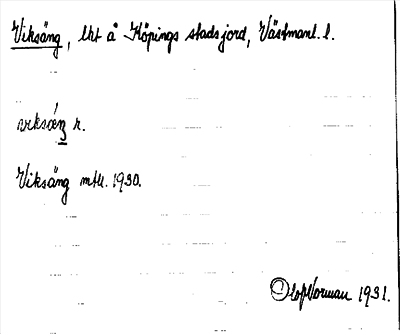 Viksäng, lht å Köpings stadsjord, Västmanl. l.
viksäŋ r.
Viksäng mtll. 1930.
Olof Norman 1931.